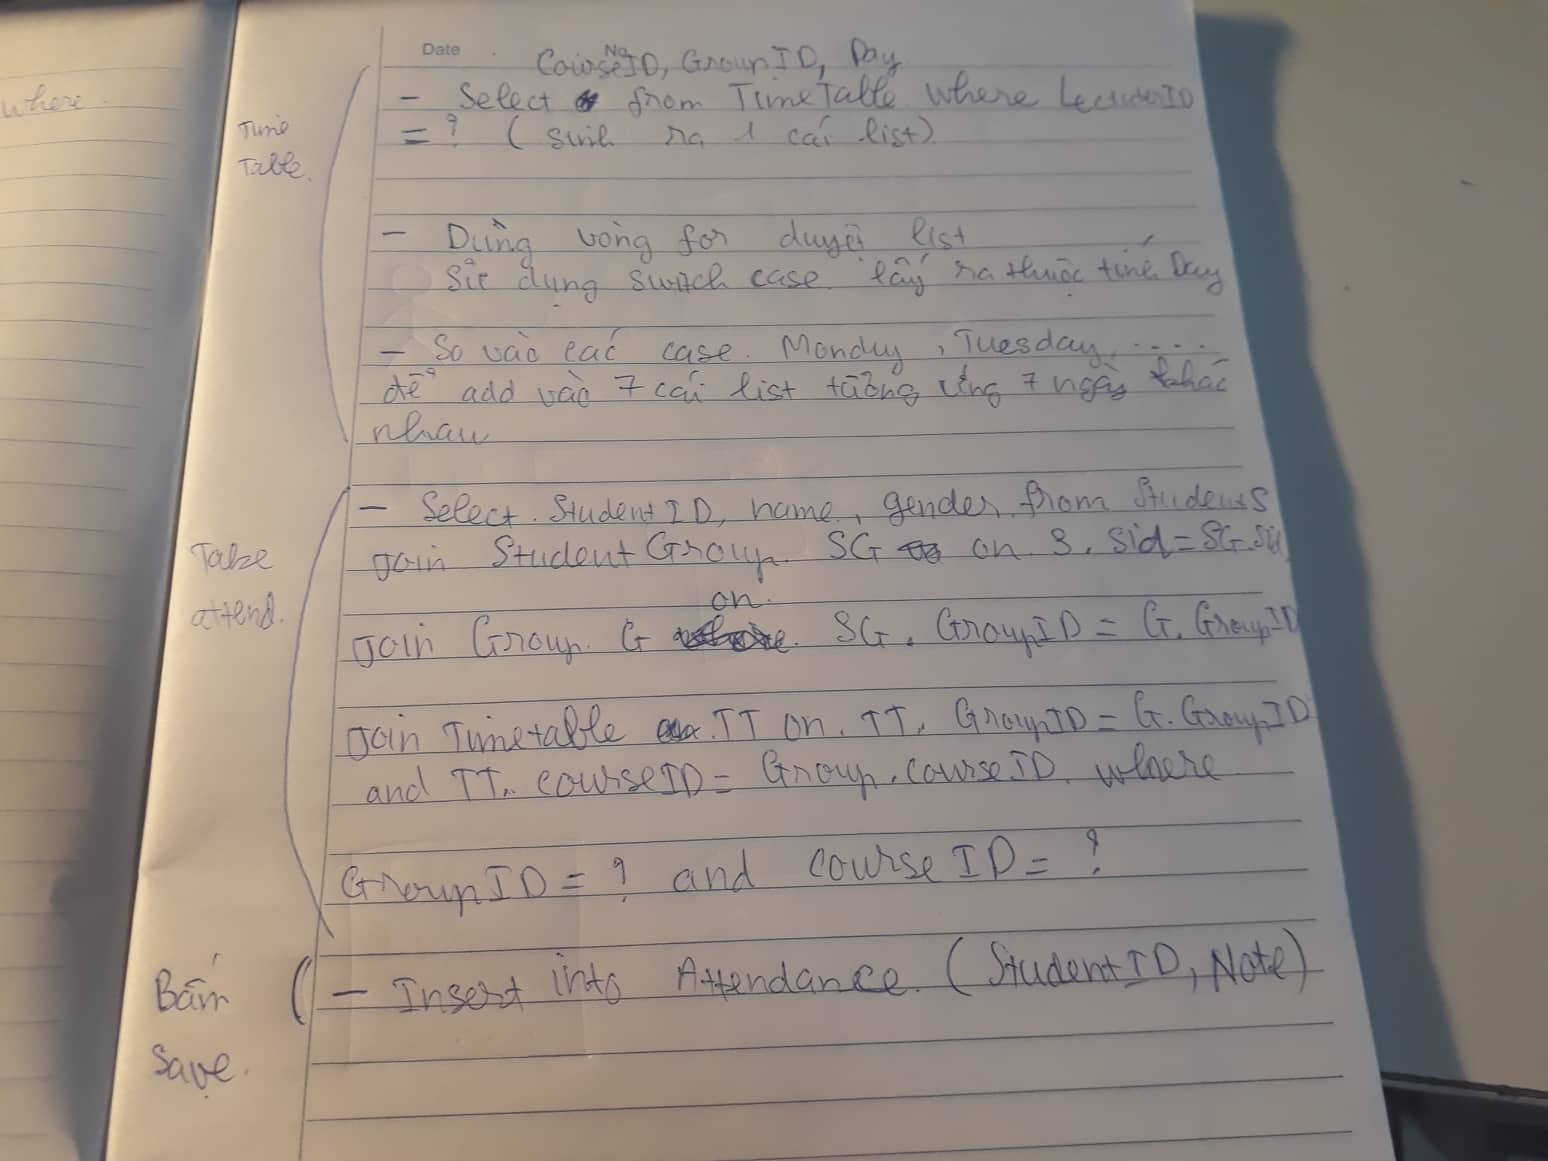 where
Date No
CourseID, GroupID, Day
Time
Table.
- Select from TimeTable where LecturerID
= ? ( sinh ra 1 cái list)
- Dùng vòng for duyệt list
Sử dụng switch case lấy ra thuộc tính Day
- So vào các case Monday, Tuesday, ....
để add vào 7 cái list tương ứng 7 ngày khác
nhau
Take
attend.
- Select StudentID, name, gender from Students
Join StudentGroup SG on S.sid = SG.sid
on
Join Group G SG.GroupID = G.GroupID
Join Timetable TT on TT.GroupID = G.GroupID
and TT.courseID = Group.courseID where
GroupID = ? and courseID = ?
Bấm
Save.
- Insert into Attendance (StudentID, Note)